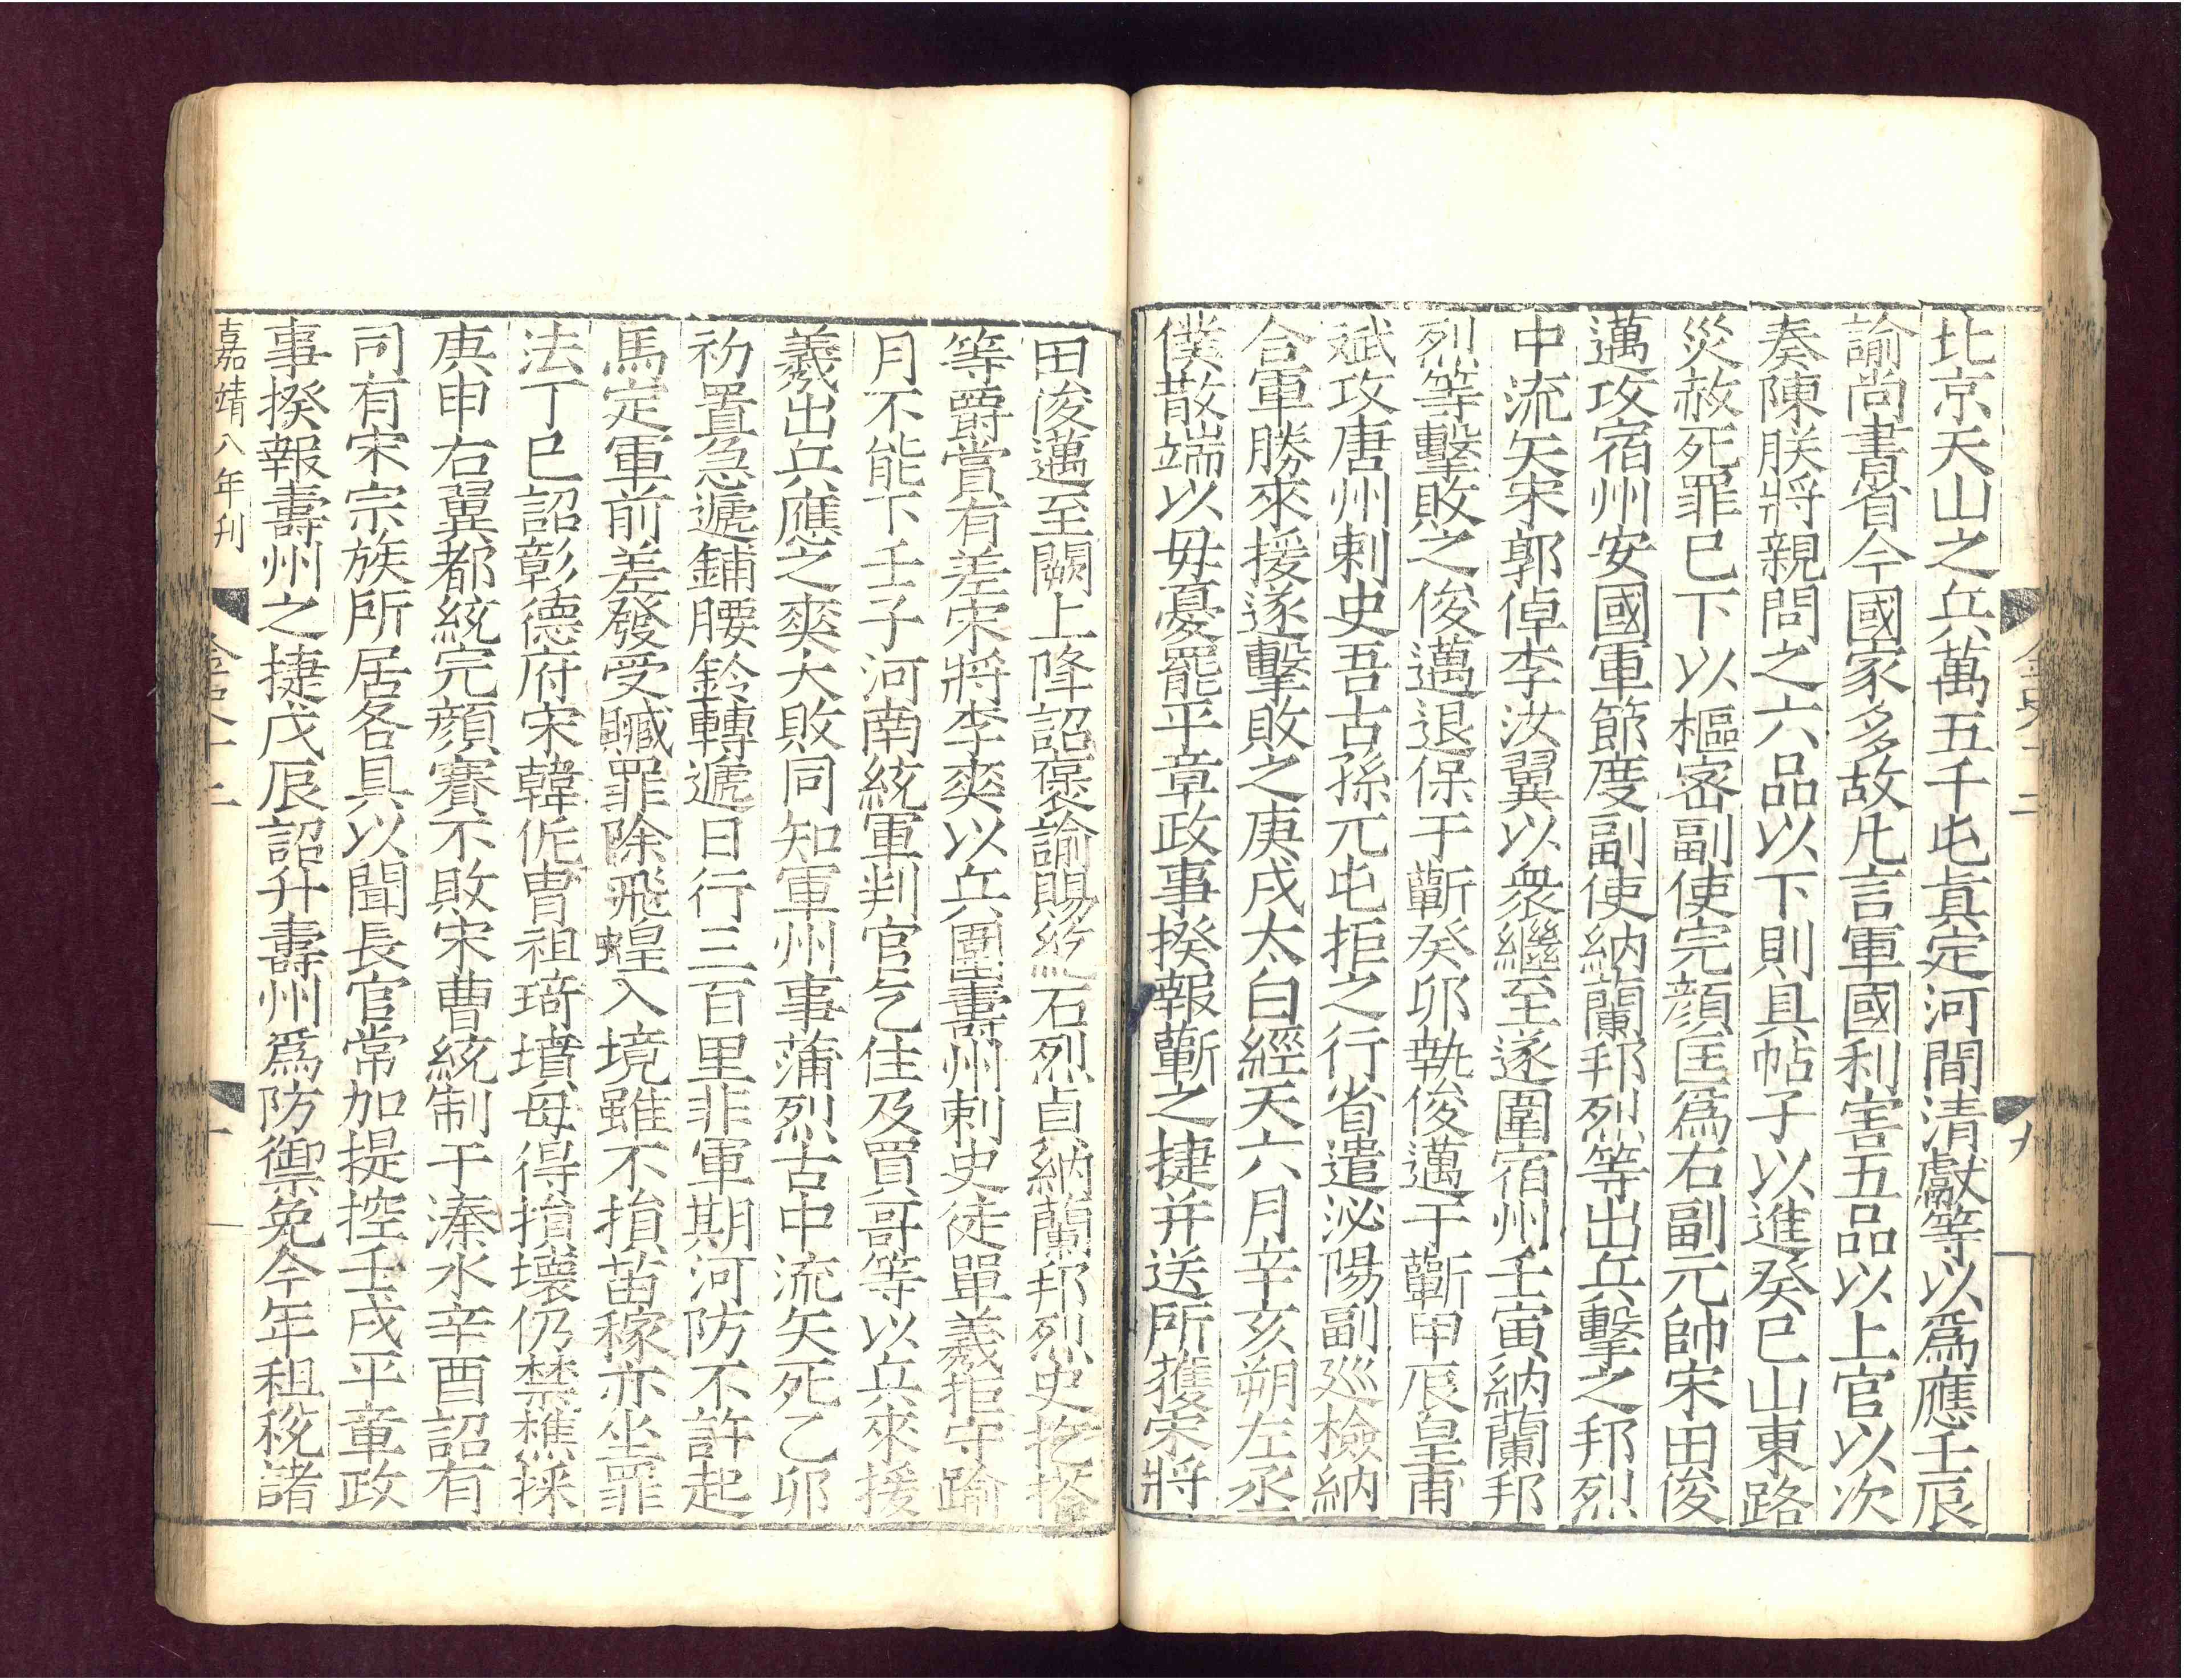 北京天山之兵萬五千屯真定河間清獻等以爲應壬辰
諭尚書省今國家多故凡言軍國利害五品以上官以次
奏陳朕將親問之六品以下則具帖子以進癸巳山東路
災赦死罪巳下以樞密副使完顔匡爲右副元帥宋田俊
邁攻宿州安國軍節度副使納蘭邦烈等出兵擊之邦烈
中流矢宋郭倬李汝翼以衆繼至遂圍宿州壬寅納蘭邦
烈等擊敗之俊邁退保于蘄癸卯執俊邁于蘄甲辰皇甫
斌攻唐州刺史吾古孫兀屯拒之行省遣泌陽副巡檢納
合軍勝來援遂擊敗之庚戌太白經天六月辛亥朔左丞
僕散端以毋憂罷平章政事揆報蘄之捷并送所獲宋將
金史十二
九
田俊邁至闕上降詔褒諭賜紇石烈貞納蘭邦烈史扢搭
等爵賞有差宋將李爽以兵圍壽州刺史徒單羲拒守踰
月不能下壬子河南統軍判官乞住及買哥等以兵來援
羲出兵應之爽大敗同知軍州事蒲烈古中流矢死乙卯
初置急遞鋪腰鈴轉遞日行三百里非軍期河防不許起
馬定軍前差發受贓罪除飛蝗入境雖不損苗稼亦坐罪
法丁巳詔彰德府宋韓侂胄祖琦墳毋得損壞仍禁樵採
庚申右翼都統完顔賽不敗宋曹統制于溱水辛酉詔有
司有宋宗族所居各具以聞長官常加提控壬戌平章政
事揆報壽州之捷戊辰詔升壽州爲防禦免今年租稅諸
嘉靖八年刊
金史十二
十